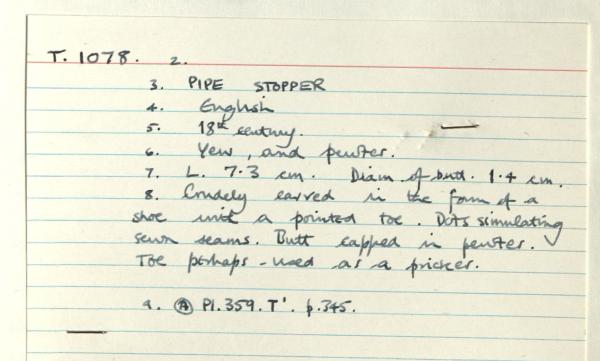 T. 1078. 2.
3. PIPE STOPPER
4. English
5. 18th century.
6. Yew, and pewter.
7. L. 7.3 cm. Diam of butt. 1.4 cm.
8. Crudely carved in the form of a
shoe with a pointed toe. Dots simulating
sewn seams. Butt capped in pewter.
Toe perhaps used as a pricker.
9. A Pl. 359. T'. p. 345.